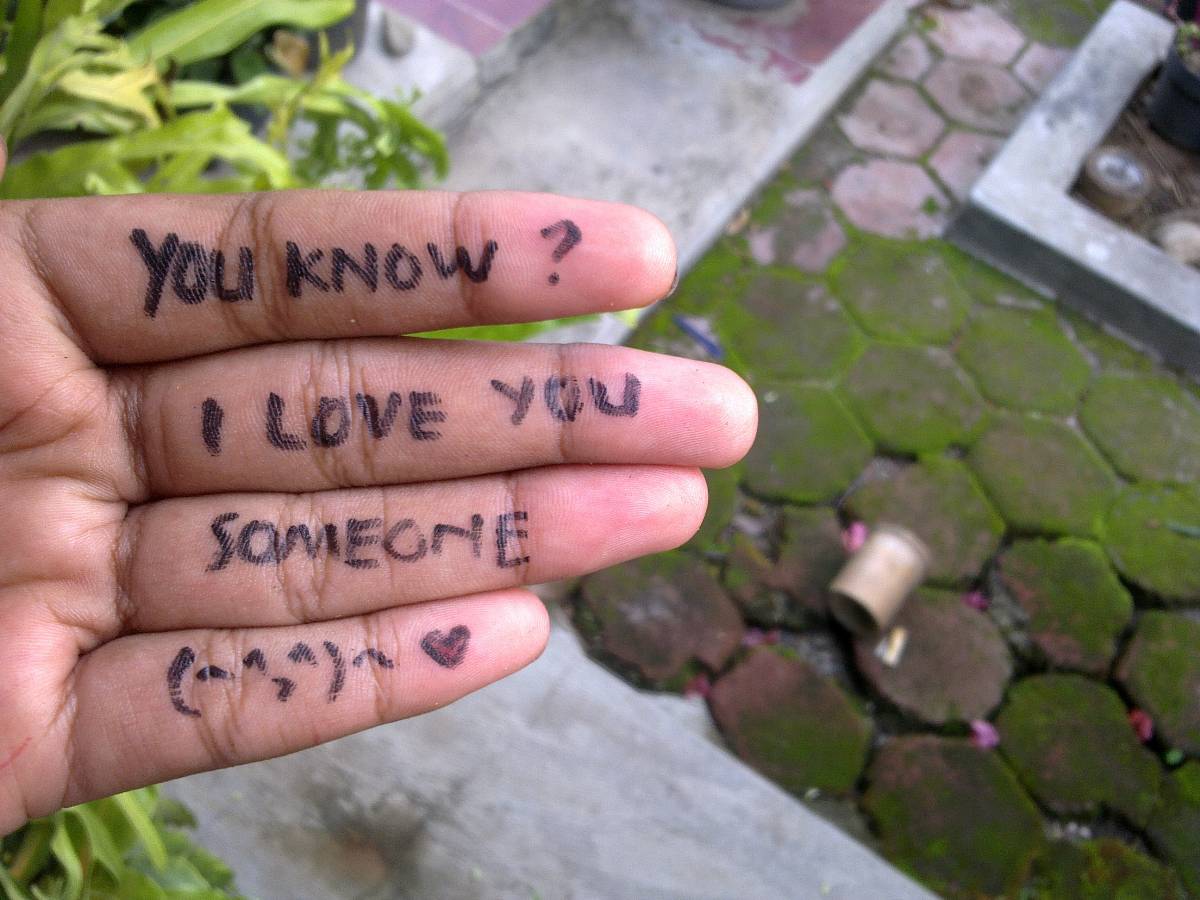 YOU KNOW ?
I LOVE YOU
SOMEONE
(-^з^)^ ♥